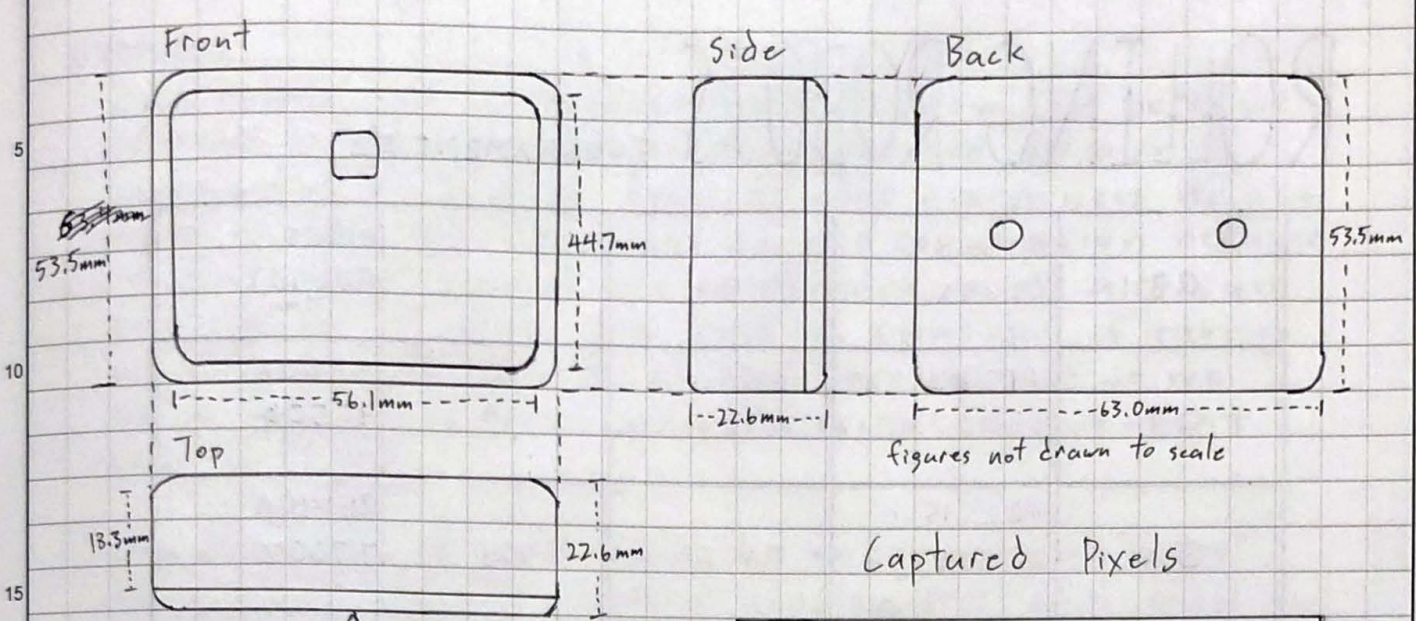 Front
Side
Back
5
53.5mm
44.7mm
53.5mm
10
56.1mm
22.6mm
63.0mm
figures not drawn to scale
Top
18.3mm
22.6mm
Captured Pixels
15